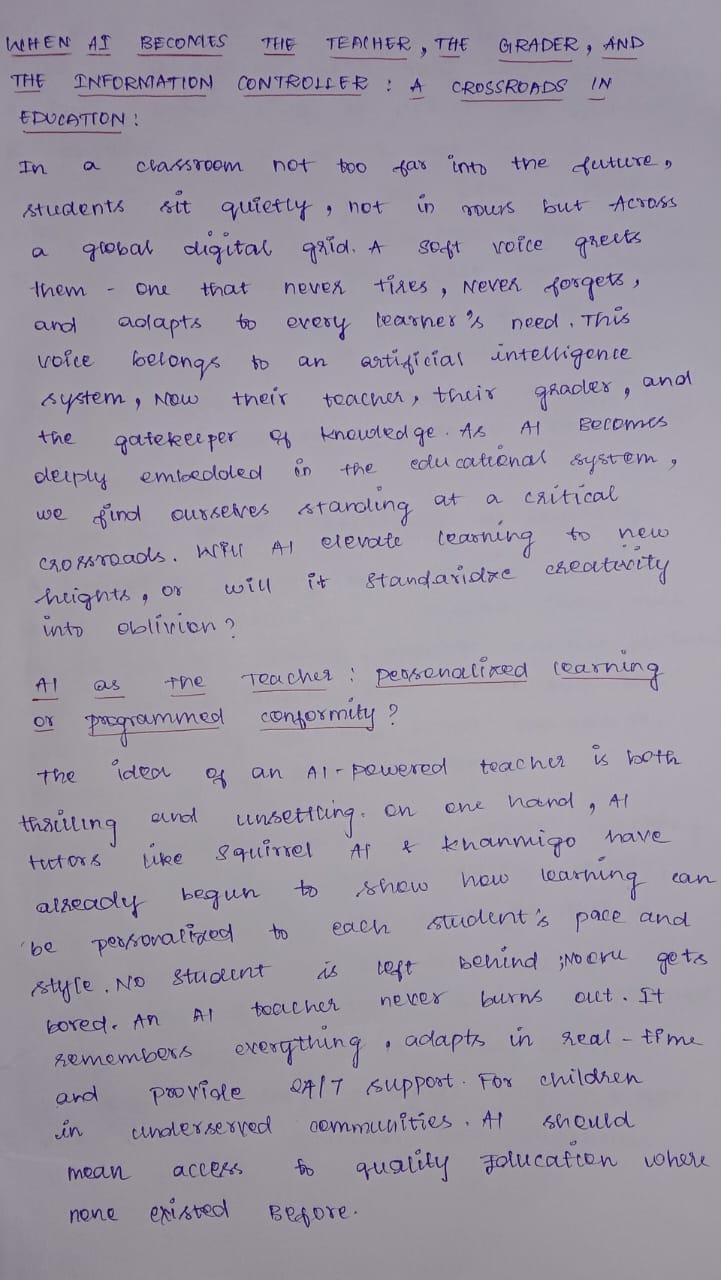 WHEN AI BECOMES THE TEACHER, THE GRADER, AND
THE INFORMATION CONTROLLER : A CROSSROADS IN
EDUCATION :
In a classroom not too far into the future,
students sit quietly, not in rows but Across
a global digital grid. A soft voice greets
them - one that never tires, Never forgets,
and adapts to every learner's need. This
voice belongs to an artificial intelligence
system, Now their teacher, their grader, and
the gatekeeper of knowledge. As AI Becomes
deeply embedded in the educational system,
we find ourselves standing at a critical
crossroads. Will AI elevate learning to new
heights, or will it standaridze creativity
into oblivion?
AI as the Teacher : personalized learning
or programmed conformity?
The idea of an AI-powered teacher is both
thrilling and unsettling. On one hand, AI
tutors like Squirrel AI & Khanmigo have
already begun to show how learning can
be personalized to each student's pace and
style. No student is left behind ; gets
bored. An AI teacher never burns out. It
remembers everything, adapts in real-time
and provide 24/7 support. For children
in underserved communities. AI should
mean access to quality Education where
none existed Before.